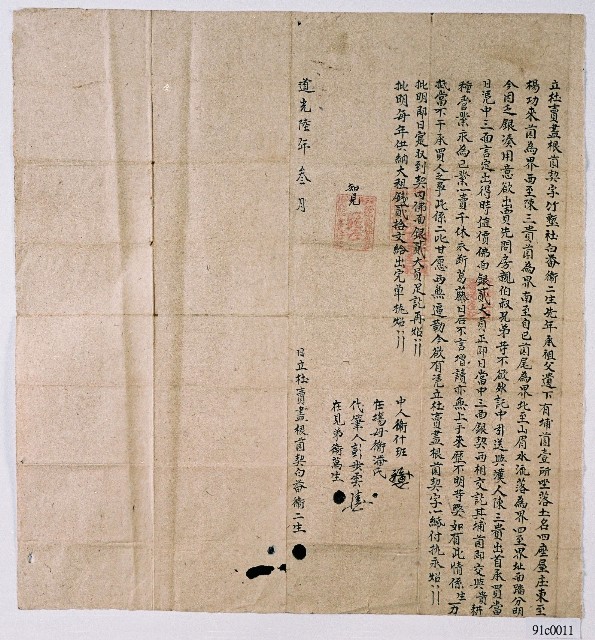 立杜賣盡根莆契字竹塹社白番衞二生先年承祖父遺下有埔莆壹所坐落土名四座屋庄東至
楊功來莆為界西至陳三貴莆為界南至自己莆尾為界北至山眉水流落為界四至界址面踏分明
今因乏銀凑用意欲出賣先問房親伯叔兄弟等不欲外託中引送與漢人陳三貴出首承買當
日憑中三面言定出得時值價佛面銀貳大員正即日當中三面銀契両相交訖其埔莆即交與貴耕
種管業永為己業一賣千休永斷葛藤日后不言增贖亦無上手來歷不明等獘如有此情係生一力
抵當不干承買人之事此係二比甘愿両無逼勒今欲有憑立杜賣盡根莆契字一紙付执永炤
批明即日寔収到契内佛面銀貳大員足訖再炤
批明每年供納大租錢貳拾文給出完單执炤
中人衞什班
在塲母衞潘氏
知見
代筆人彭步雲
在見弟衞萬生
道光陸年叁月
日立杜賣盡根莆契白番衞二生
91c0011